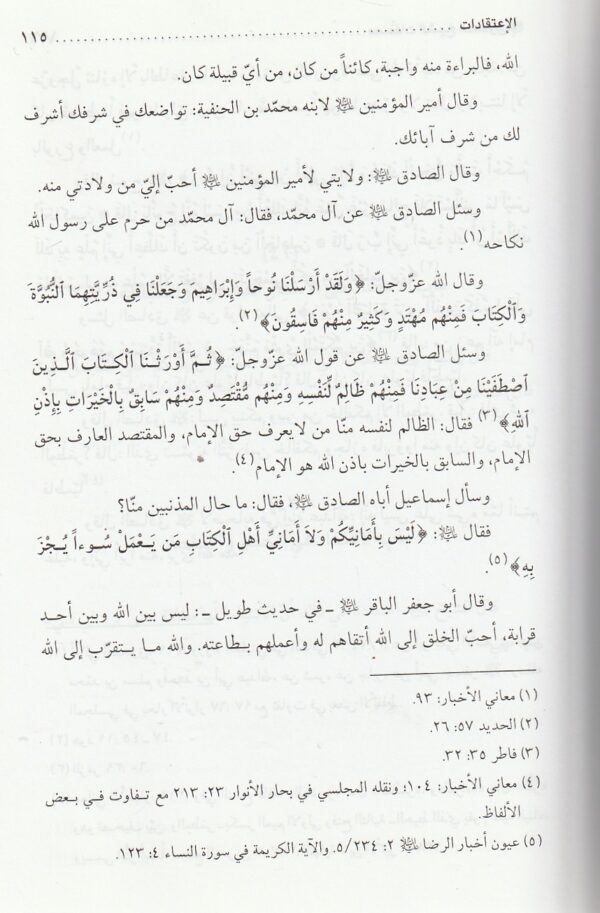 الإعتقادات ................................................ ١١٥
الله، فالبراءة منه واجبة، كائناً من كان، من أيّ قبيلة كان.
وقال أمير المؤمنين ﵇ لابنه محمّد بن الحنفية: تواضعك في شرفك أشرف
لك من شرف آبائك.
وقال الصادق ﵇: ولايتي لأمير المؤمنين ﵇ أحبّ إليّ من ولادتي منه.
وسئل الصادق ﵇ عن آل محمّد، فقال: آل محمّد من حرم على رسول الله
نكاحه(١).
وقال الله عزّوجلّ: ﴿وَلَقَدْ أَرْسَلْنَا نُوحاً وَإِبْرَاهِيمَ وَجَعَلْنَا فِي ذُرِّيَّتِهِمَا ٱلنُّبُوَّةَ
وَٱلْكِتَابَ فَمِنْهُم مُهْتَدٍ وَكَثِيرٌ مِنْهُمْ فَاسِقُونَ﴾(٢).
وسئل الصادق ﵇ عن قول الله عزّوجلّ: ﴿ثُمَّ أَوْرَثْنَا ٱلْكِتَابَ ٱلَّذِينَ
ٱصْطَفَيْنَا مِنْ عِبَادِنَا فَمِنْهُمْ ظَالِمٌ لِّنَفْسِهِ وَمِنْهُمْ مُّقْتَصِدٌ وَمِنْهُمْ سَابِقٌ بِالْخَيْرَاتِ بِإِذْنِ
ٱللهِ﴾(٣) فقال: الظالم لنفسه منّا من لايعرف حق الإمام، والمقتصد العارف بحق
الإمام، والسابق بالخيرات باذن الله هو الإمام(٤).
وسأل إسماعيل أباه الصادق ﵇، فقال: ما حال المذنبين منّا؟
فقال ﵇: ﴿لَيْسَ بِأَمَانِيِّكُمْ وَلاَ أَمَانِيِّ أَهْلِ ٱلْكِتَابِ مَن يَعْمَلْ سُوءاً يُجْزَ
بِهِ﴾(٥).
وقال أبو جعفر الباقر ﵇ ـ في حديث طويل ـ: ليس بين الله وبين أحد
قرابة، أحبّ الخلق إلى الله أتقاهم له وأعملهم بطاعته. والله ما يتقرّب إلى الله
(١) معاني الأخبار: ٩٣.
(٢) الحديد ٥٧: ٢٦.
(٣) فاطر ٣٥: ٣٢.
(٤) معاني الأخبار: ١٠٤؛ ونقله المجلسي في بحار الأنوار ٢٣: ٢١٣ مع تفاوت في بعض
الألفاظ.
(٥) عيون أخبار الرضا ﵇ ٢: ٥/٢٣٤. والآية الكريمة في سورة النساء ٤: ١٢٣.